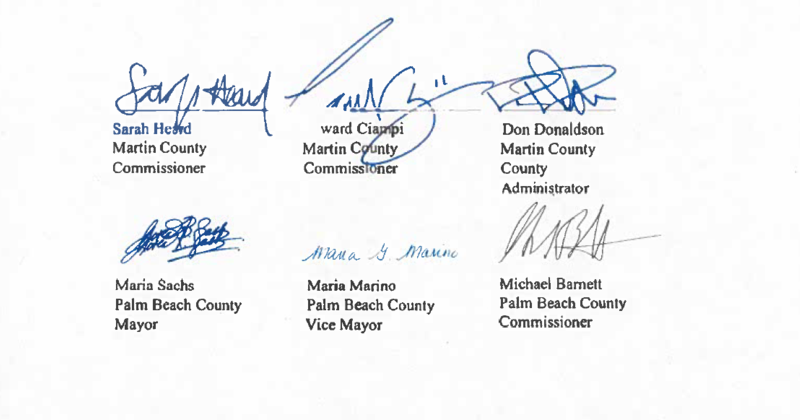 Sarah Heard
Sarah Heard
Martin County
Commissioner
ward Ciampi
Martin County
Commissioner
Don Donaldson
Martin County
County
Administrator
Maria Sachs
Palm Beach County
Mayor
Maria G. Marino
Maria Marino
Palm Beach County
Vice Mayor
Michael Barnett
Palm Beach County
Commissioner